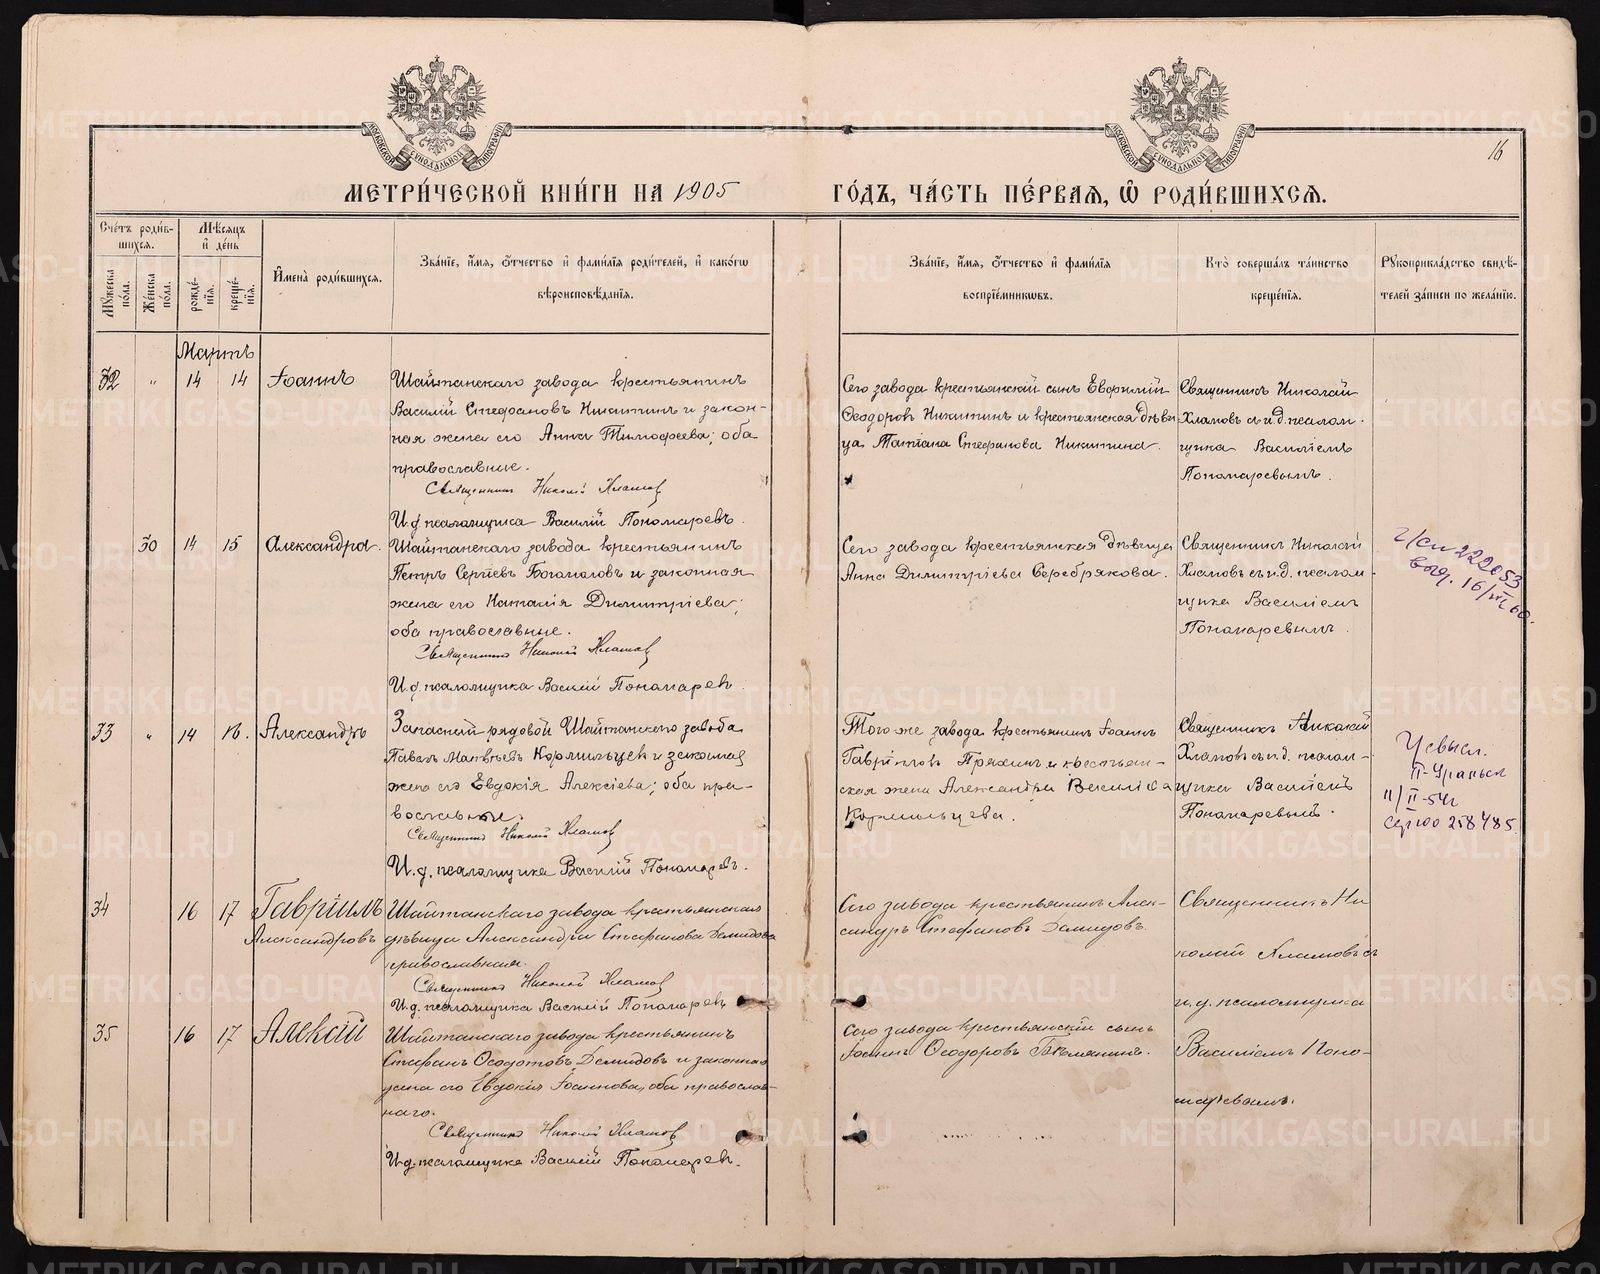 МОСКОВСКОЙ СѴНОДАЛЬНОЙ ТИПОГРАФІИ
МОСКОВСКОЙ СѴНОДАЛЬНОЙ ТИПОГРАФІИ
16
МЕТРИ́ЧЕСКОЙ КНИ́ГИ НА 1905 ГО́ДЪ, ЧА́СТЬ ПЕ́РВАЯ, Ѿ РОДИ́ВШИХСЯ.
Сче́тъ роди́в-
шихся.
Мꙋ́жеска по́ла.
Же́нска по́ла.
Мѣ́сяцъ
и҆ де́нь
рожде́-
нїя.
креще́-
нїя.
И҆мена̀ роди́вшихся.
Зва́нїе, и҆́мя, ѻ҆́тчество и҆ фами́лїя роди́телей, и҆ како́гѡ
вѣроисповѣ́данїя.
Зва́нїе, и҆́мя, ѻ҆́тчество и҆ фами́лїя
воспрїе́мникѡвъ.
Кто̀ соверша́лъ та́инство
креще́нїя.
Рꙋкоприкла́дство свидѣ́-
телей за́писи по жела́нїю.
Мартъ
32 " 14 14 Іоаннъ
Шайтанскаго завода крестьянинъ
Василій Стефановъ Никитинъ и закон-
ная жена его Анна Тимофеева; оба
православные.
Священникъ Николай Хламов
И.д. псаломщика Василій Пономаревъ.
Сего завода крестьянскій сынъ Евфимій
Ѳеодоровъ Никитинъ и крестьянская дѣви
ца Татіана Стефанова Никитина.
Священникъ Николай
Хламовъ съ и.д. псалом-
щика Василіемъ
Пономаревымъ.
30 14 15 Александра.
Шайтанскаго завода крестьянинъ
Петръ Сергіевъ Богомоловъ и законная
жена его Наталія Димитріева;
оба православные.
Священникъ Николай Хламов
И.д. псаломщика Василій Пономарев
Сего завода крестьянская дѣвица
Анна Димитріева Серебрякова.
Священникъ Николай
Хламовъ съ и.д. псалом-
щика Василіемъ
Пономаревымъ.
222053
выд. 16/VI 60.
33 " 14 16. Александръ
Запасный рядовой Шайтанскаго завода
Павелъ Матвѣевъ Кормильцев и законная
жена его Евдокія Алексіева; оба пра-
вославные.
Священникъ Николай Хламов
И.д. псаломщика Василій Пономаревъ.
Того же завода крестьянинъ Іоаннъ
Гавріиловъ Пряхинъ и крестьян-
ская жена Александра Василіева
Кормильцева.
Священникъ Николай
Хламовъ съ и.д. псалом-
щика Василіемъ
Пономаревымъ.
II-Уральск
11/II-54г
258485
34 16 17 Гавріилъ
Александровъ
Шайтанскаго завода крестьянская
дѣвица Александра Стефанова Демидова
православная.
Священникъ Николай Хламов
И.д. псаломщика Василій Пономарев
Сего завода крестьянинъ Алек-
сандръ Стефановъ Демидовъ.
Священникъ Ни
колай Хламовъ съ
и.д. псаломщика
Василіемъ Поно-
маревымъ.
35 16 17 Алексій
Шайтанскаго завода крестьянинъ
Стефанъ Ѳеодотовъ Демидовъ и законная
жена его Евдокія Іоаннова, оба православ-
наго.
Священникъ Николай Хламов
И.д. псаломщика Василій Пономарев.
Сего завода крестьянскій сынъ
Іоаннъ Ѳеодоровъ